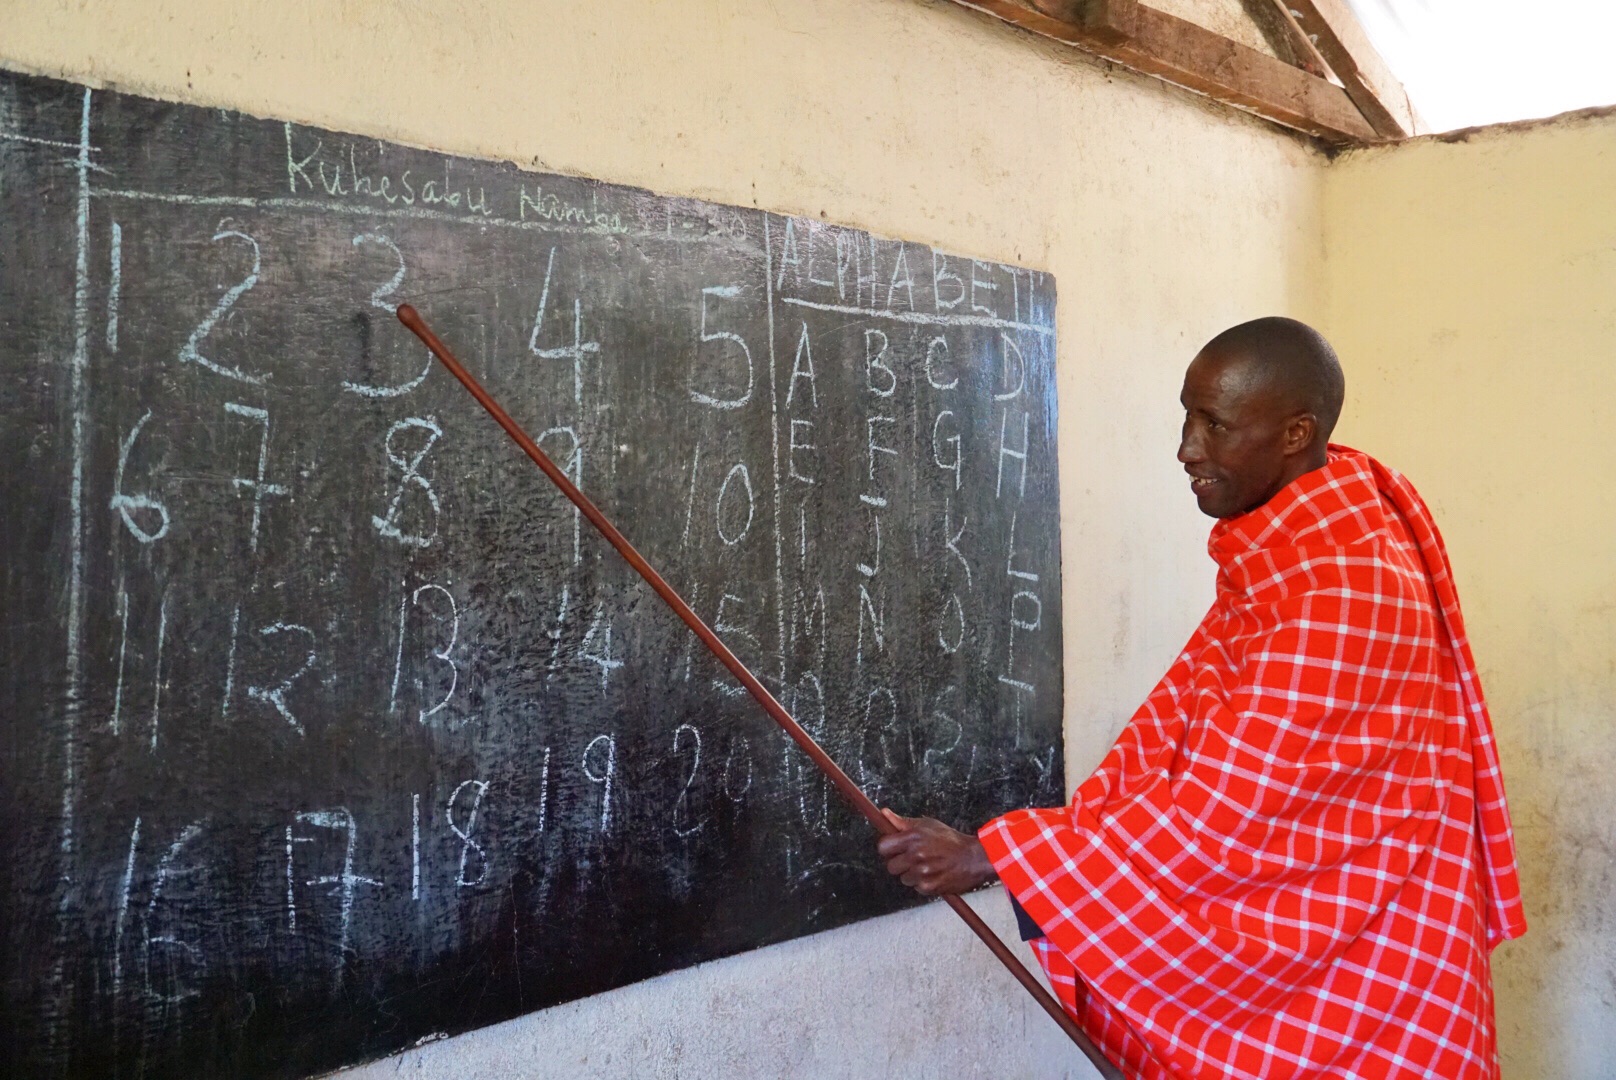 Kuhesabu Namba 1-20
1 2 3 4 5
6 7 8 9 10
11 12 13 14 15
16 17 18 19 20
ALPHABETI
A B C D
E F G H
I J K L
M N O P
Q R S T
U